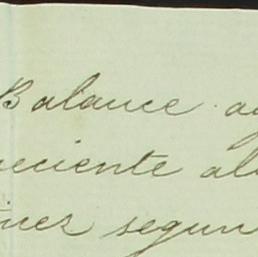 Balance a
neciente al
inez segun